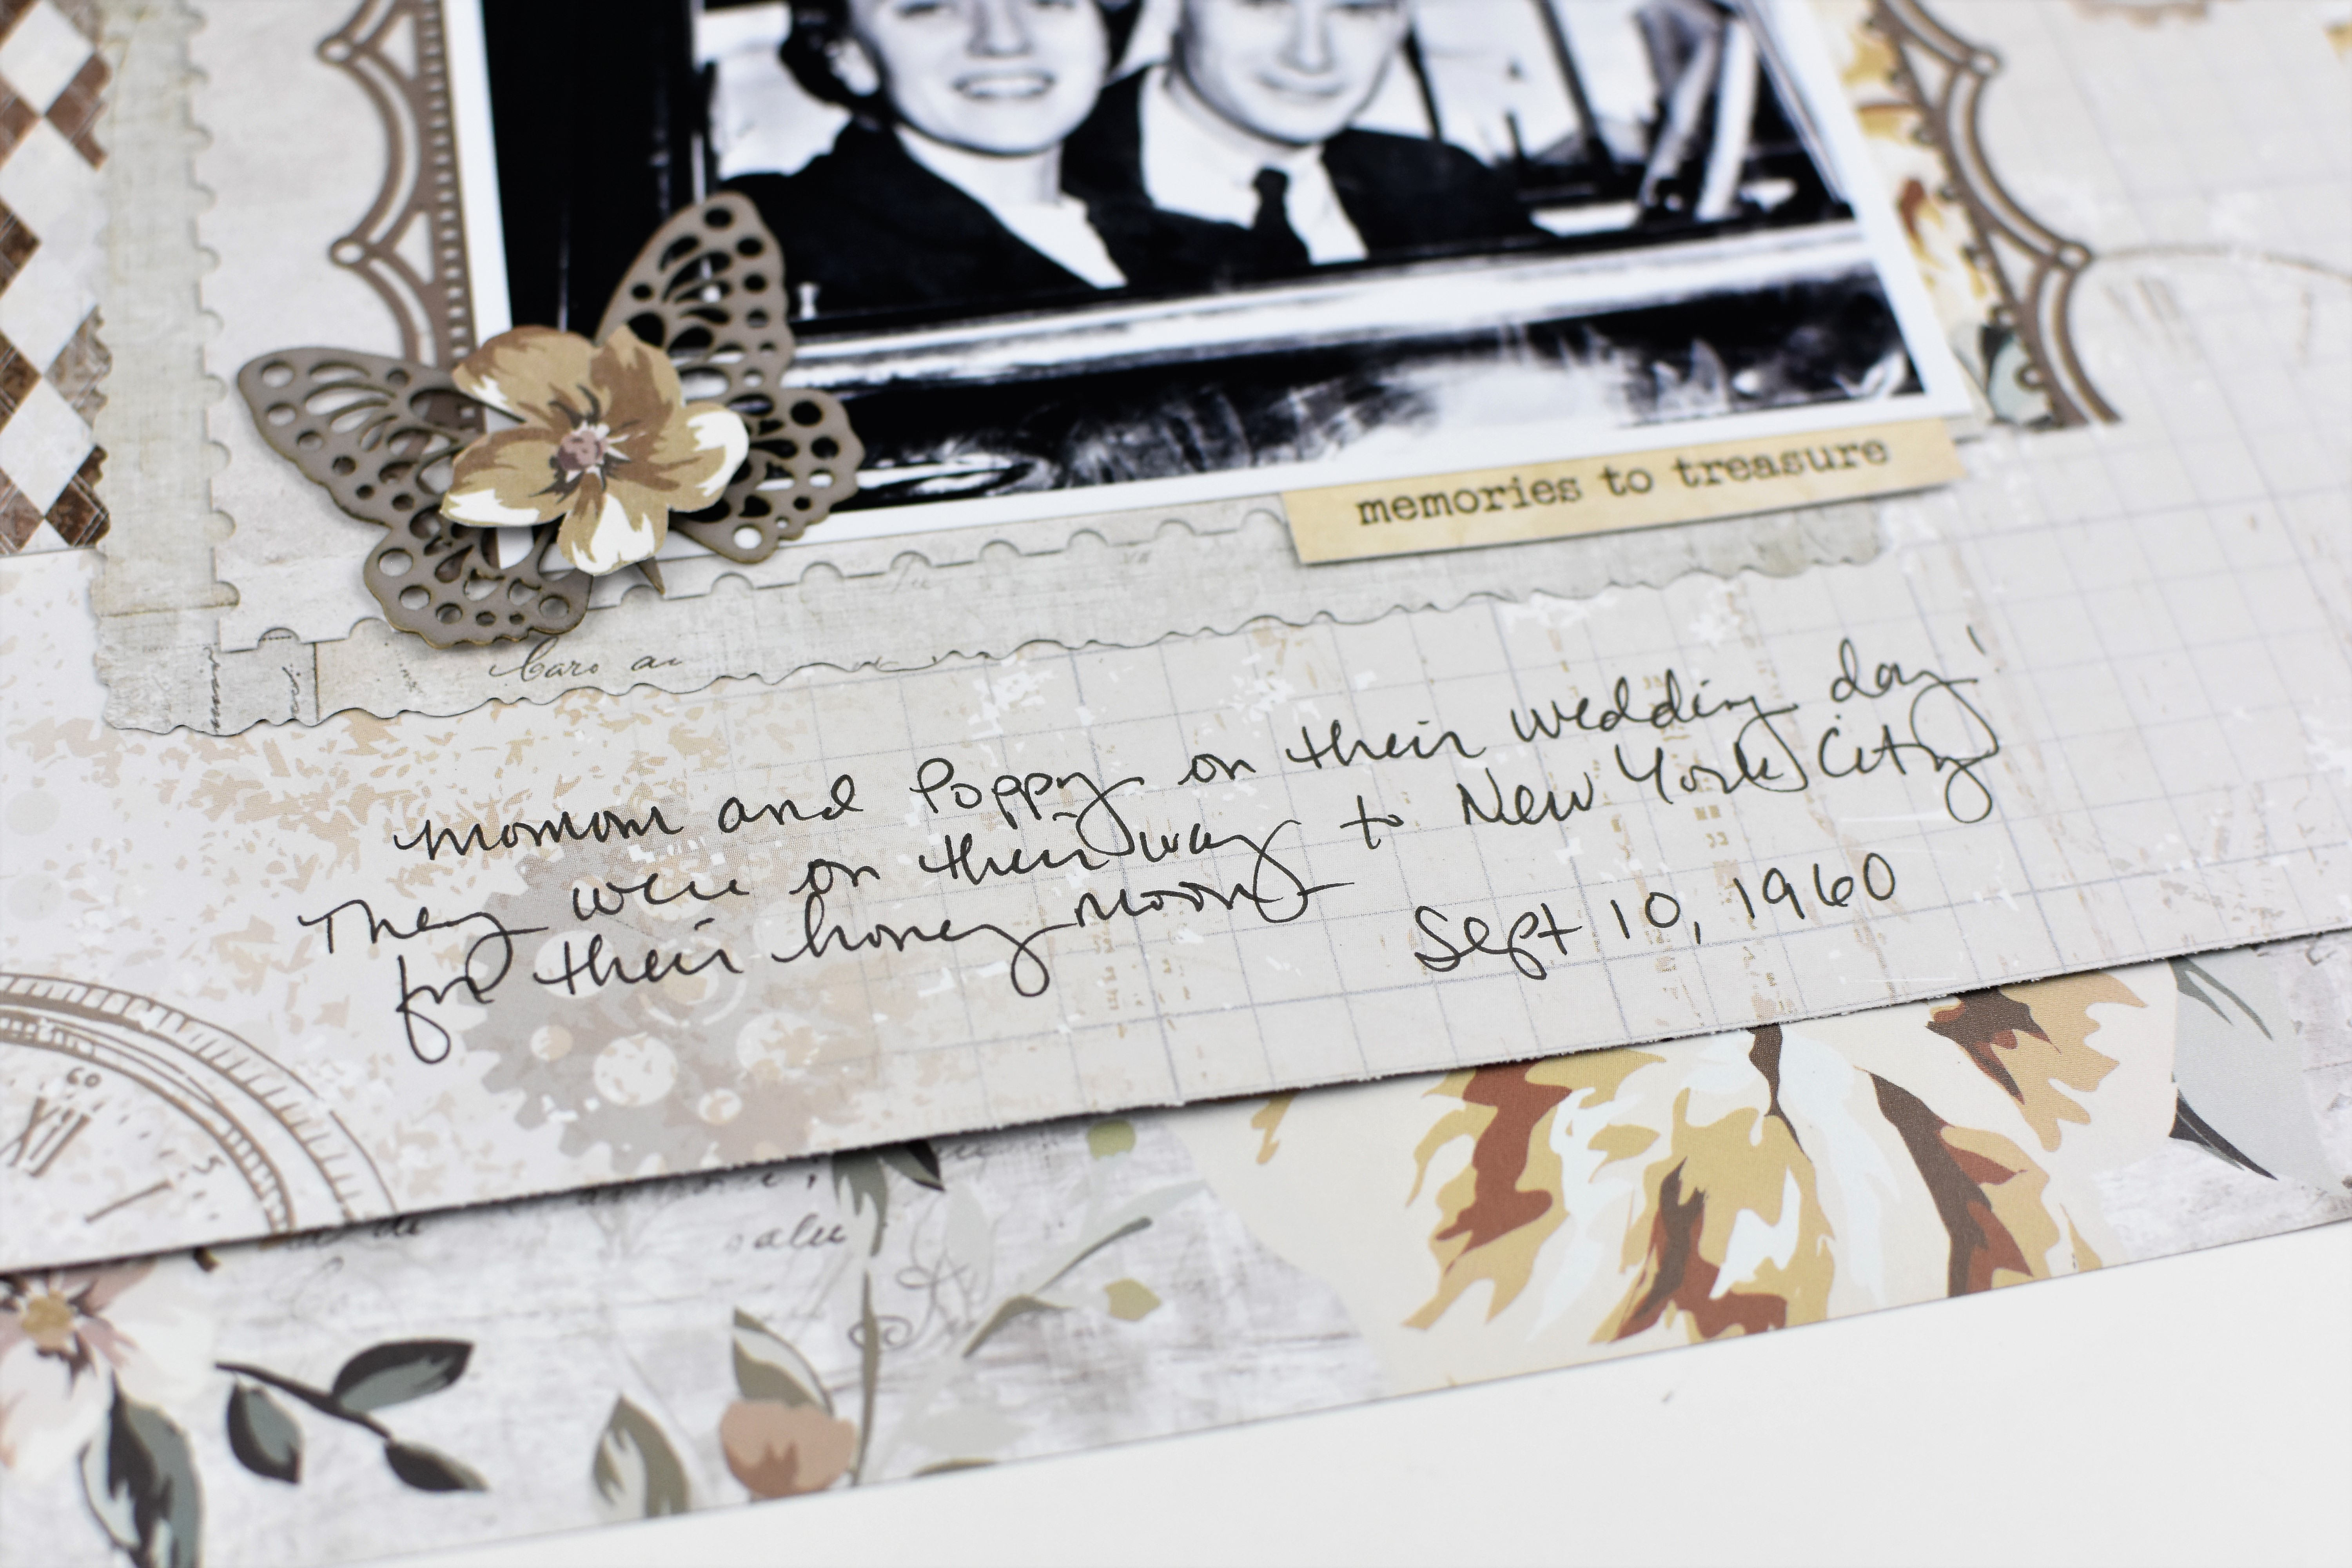 memories to treasure
Caro au
momom and Poppy on their wedding day!
They were on their way to New York City
for their honey moon
Sept 10, 1960
60
XII
5
I
salu